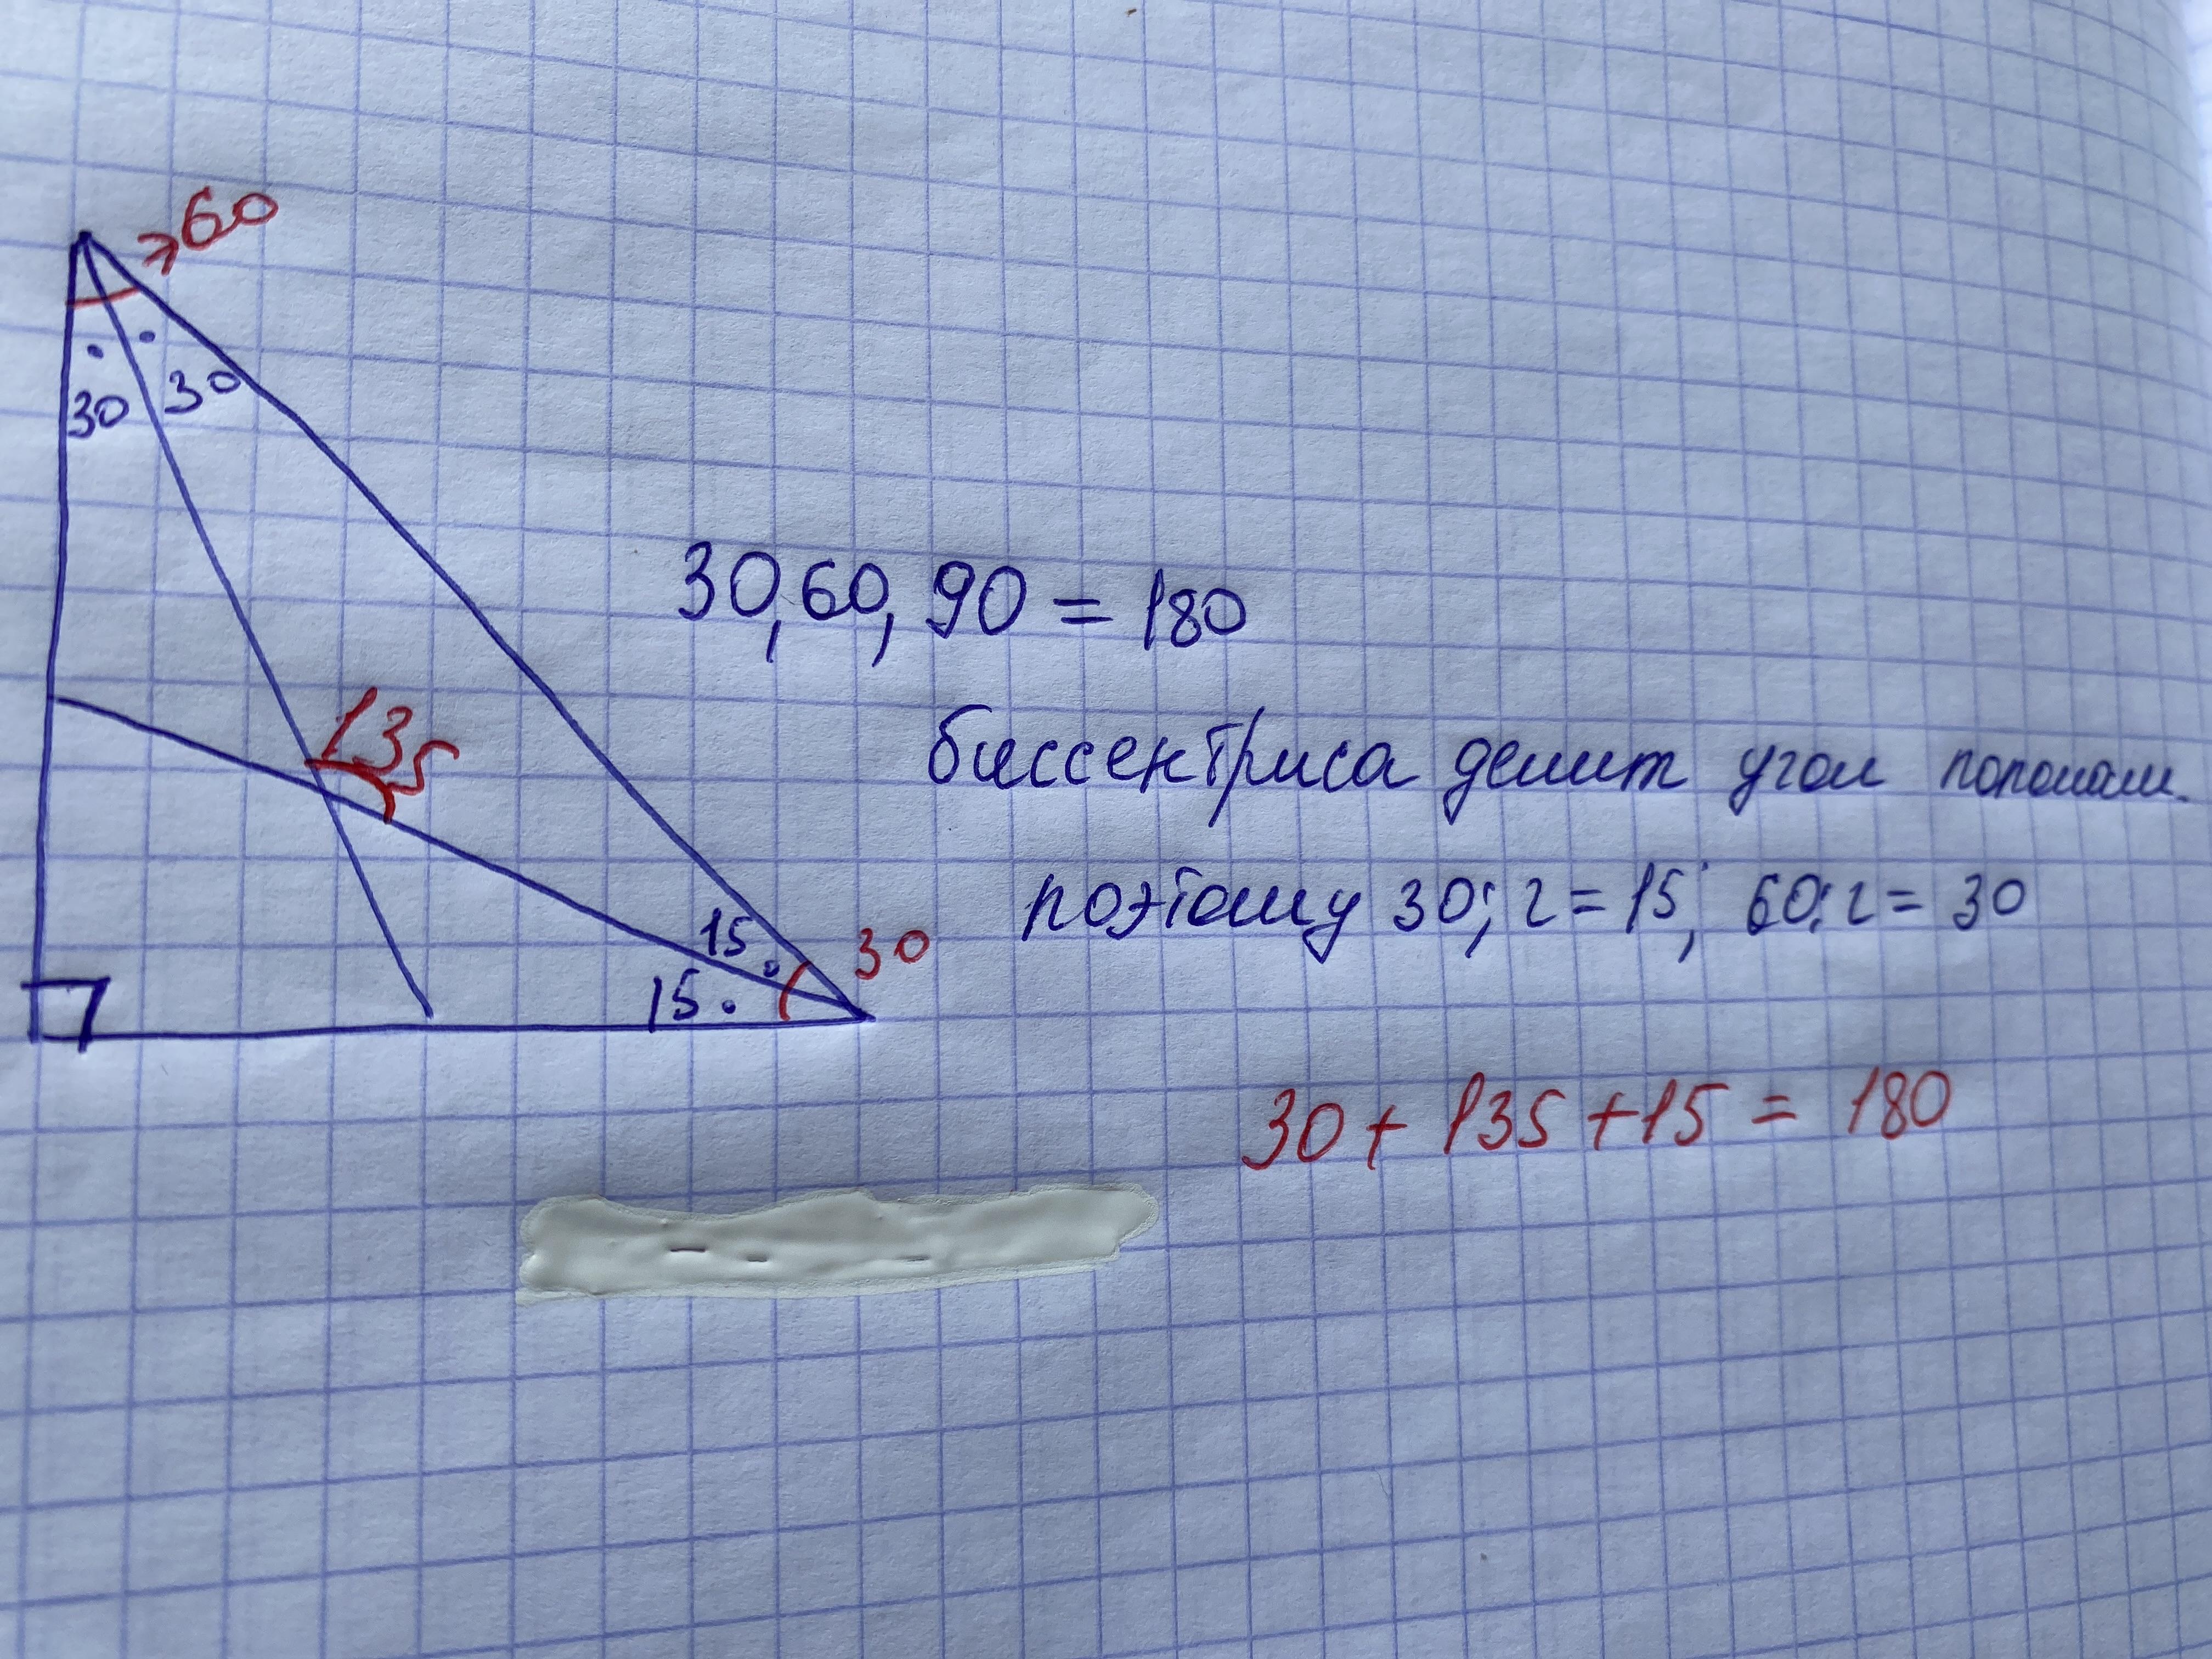 60
30 30
30, 60, 90 = 180
135
биссектриса делит угол пополам.
поэтому 30:2 = 15; 60:2 = 30
15 30
15
30 + 135 + 15 = 180